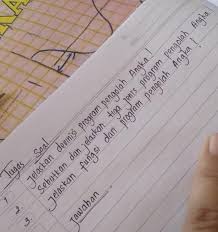 Tugas Soal
1 Jelaskan devinisi program pengolah Angka!
2 Sebutkan dan jelaskan tiga jenis program pengolah Angka
3. Jelaskan fungsi dari program pengolah Angka!
Jawaban